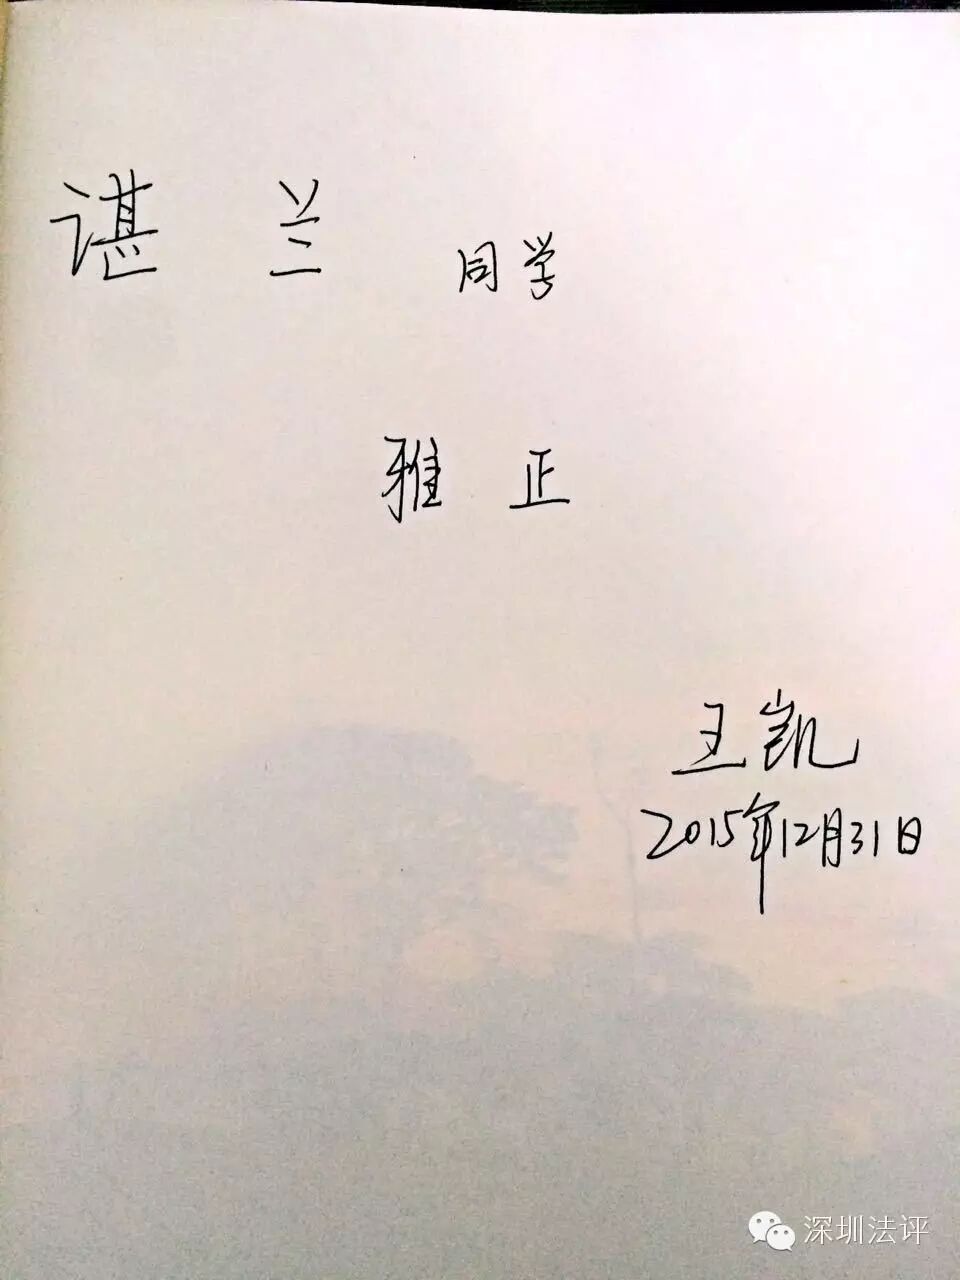 谌兰同学
雅正
王凯
2015年12月31日
深圳法评